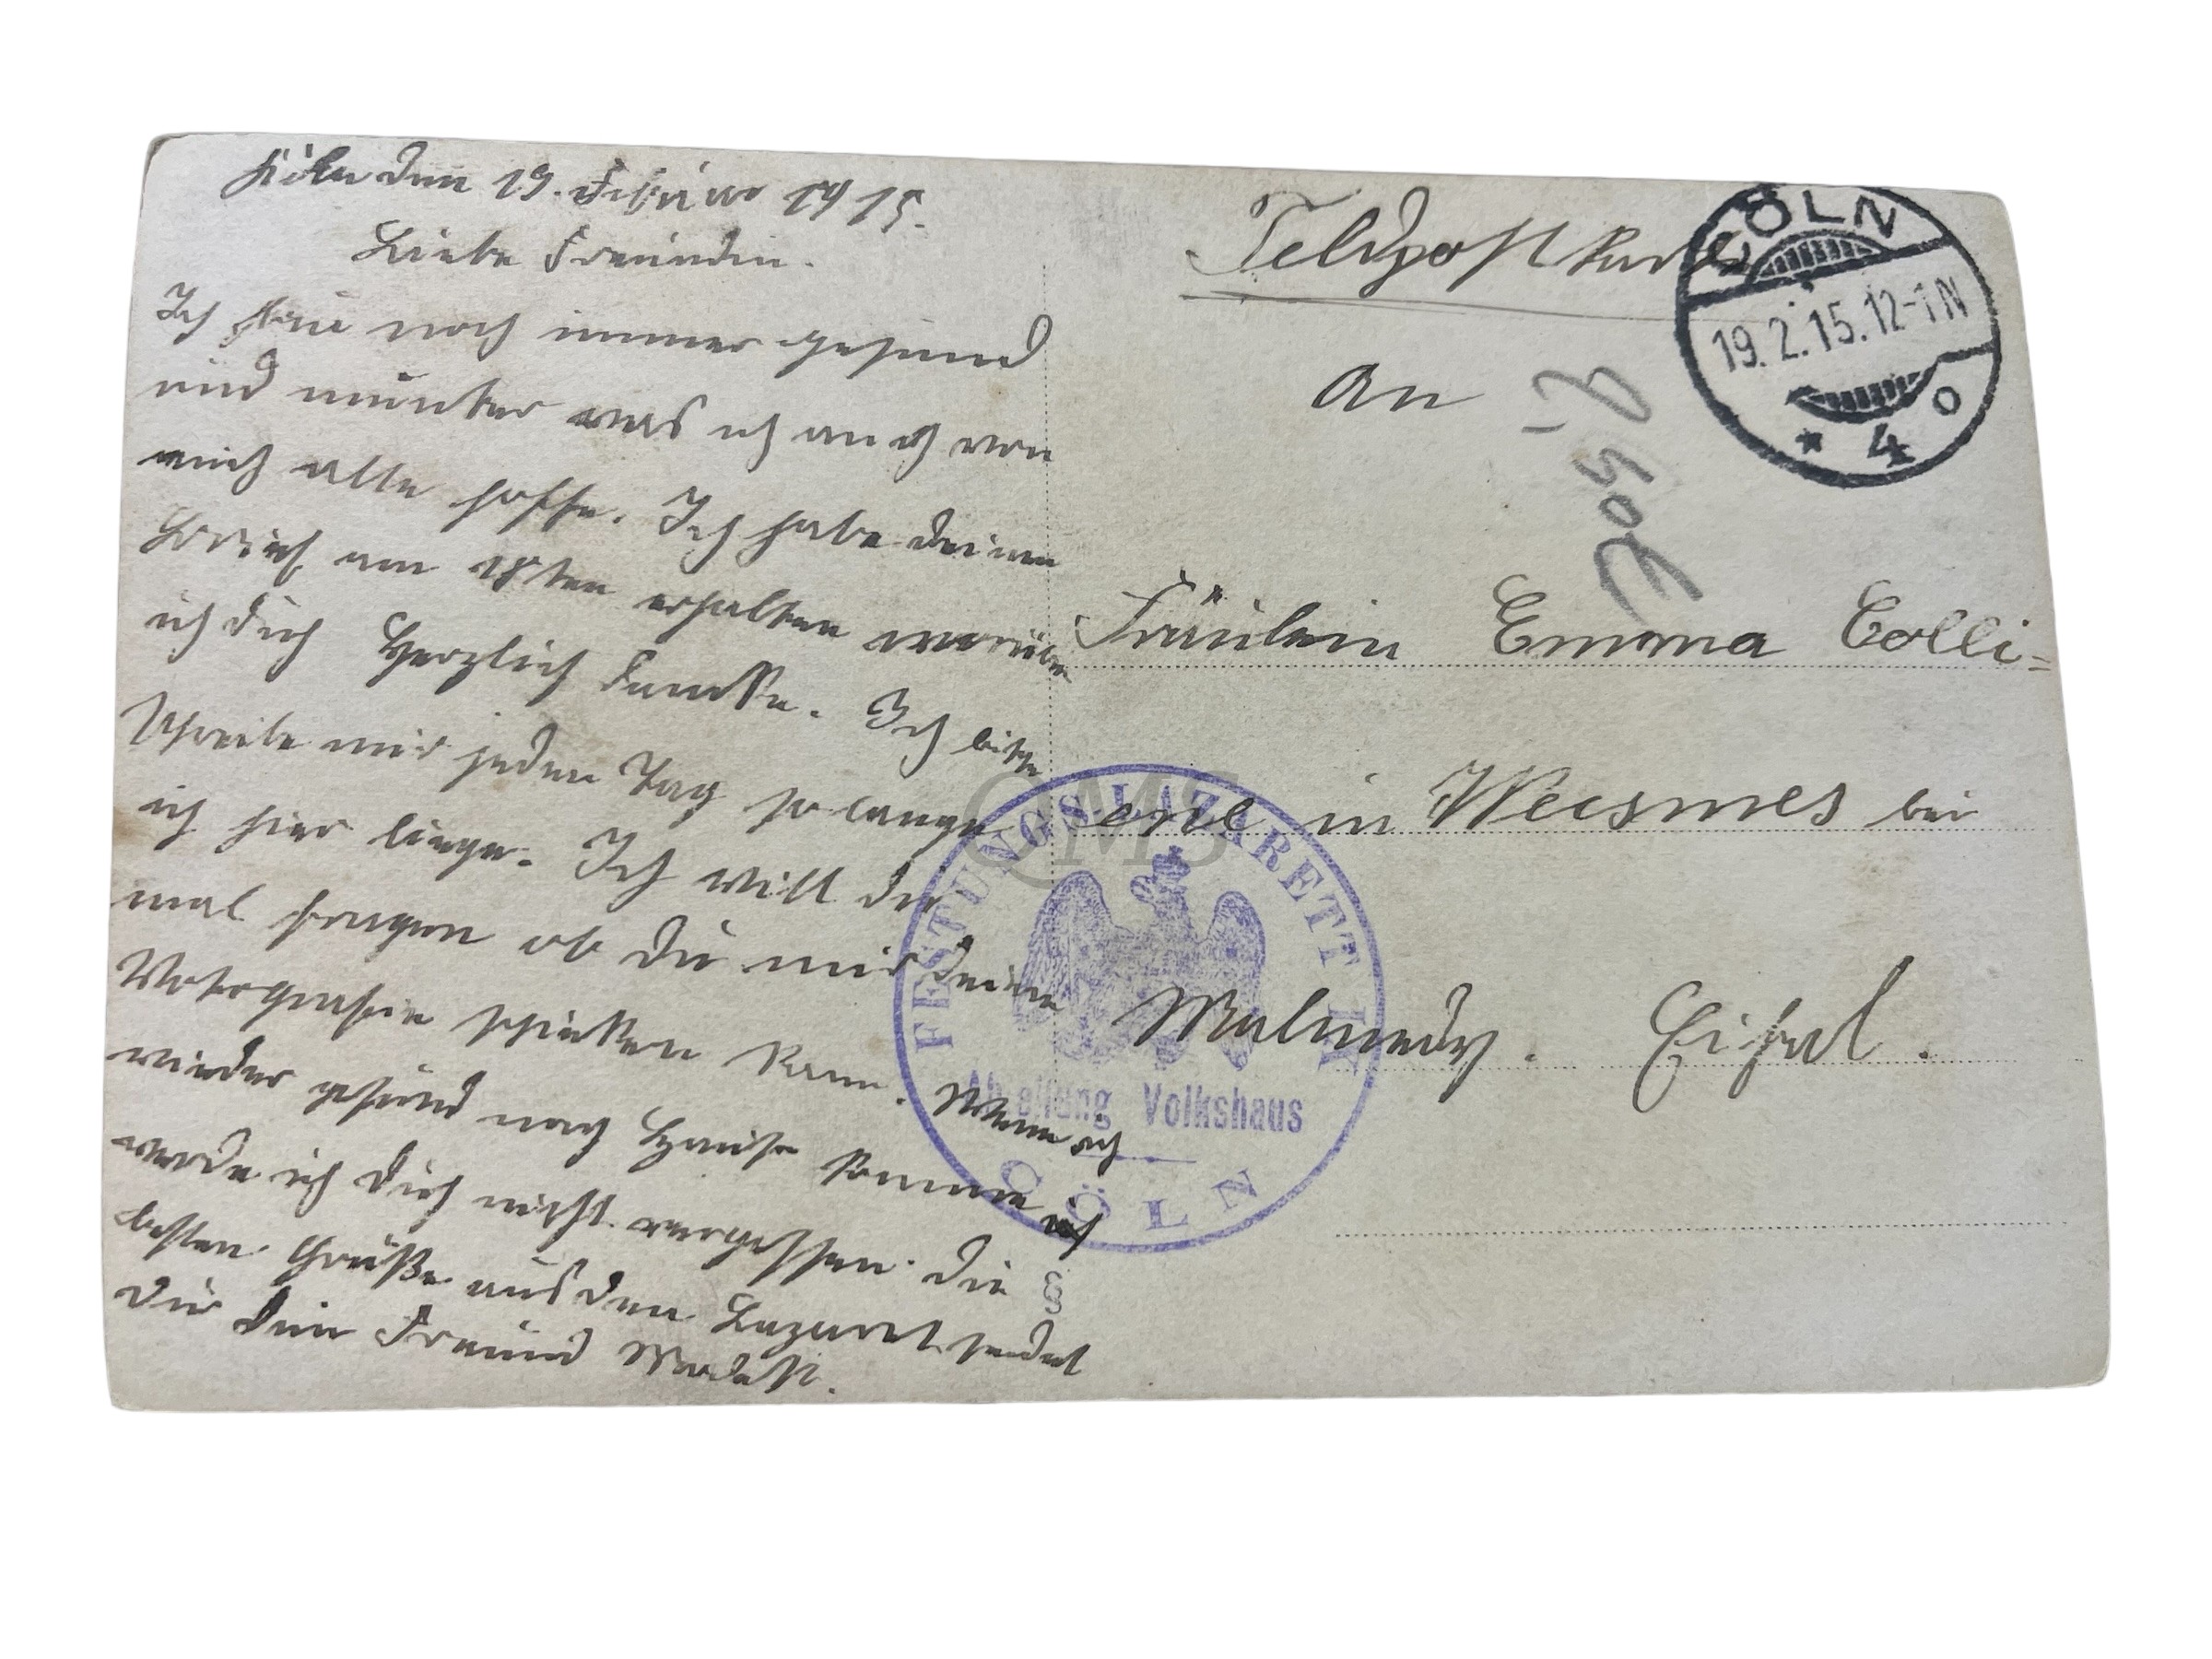 Köln den 19. Februar 1915.
Liebe Freundin.
Ich bin noch immer gesund
und munter was ich auch von
euch alle hoffe. Ich habe deinen
Brief am 18ten erhalten worüber
ich dich Herzlich danke. Ich bitte
schreibe mir jeden Tag so lange
ich hier liege. Ich will dir
mal fragen ob du mir deine
Votografie schicken kann. Wenn ich
wieder gesund nach Hause komme
werde ich dich nicht vergessen. Die
besten Grüße aus den Lazaret sendet
dir dein Freund
Feldpostkarte
An
Fräulein Emma Colli=
enne in Weismes bei
Malmedy. Eifel.
CÖLN
19.2.15.12-1N
* 4 o
FESTUNGSLAZARETT IX
Abteilung Volkshaus
CÖLN
QMS